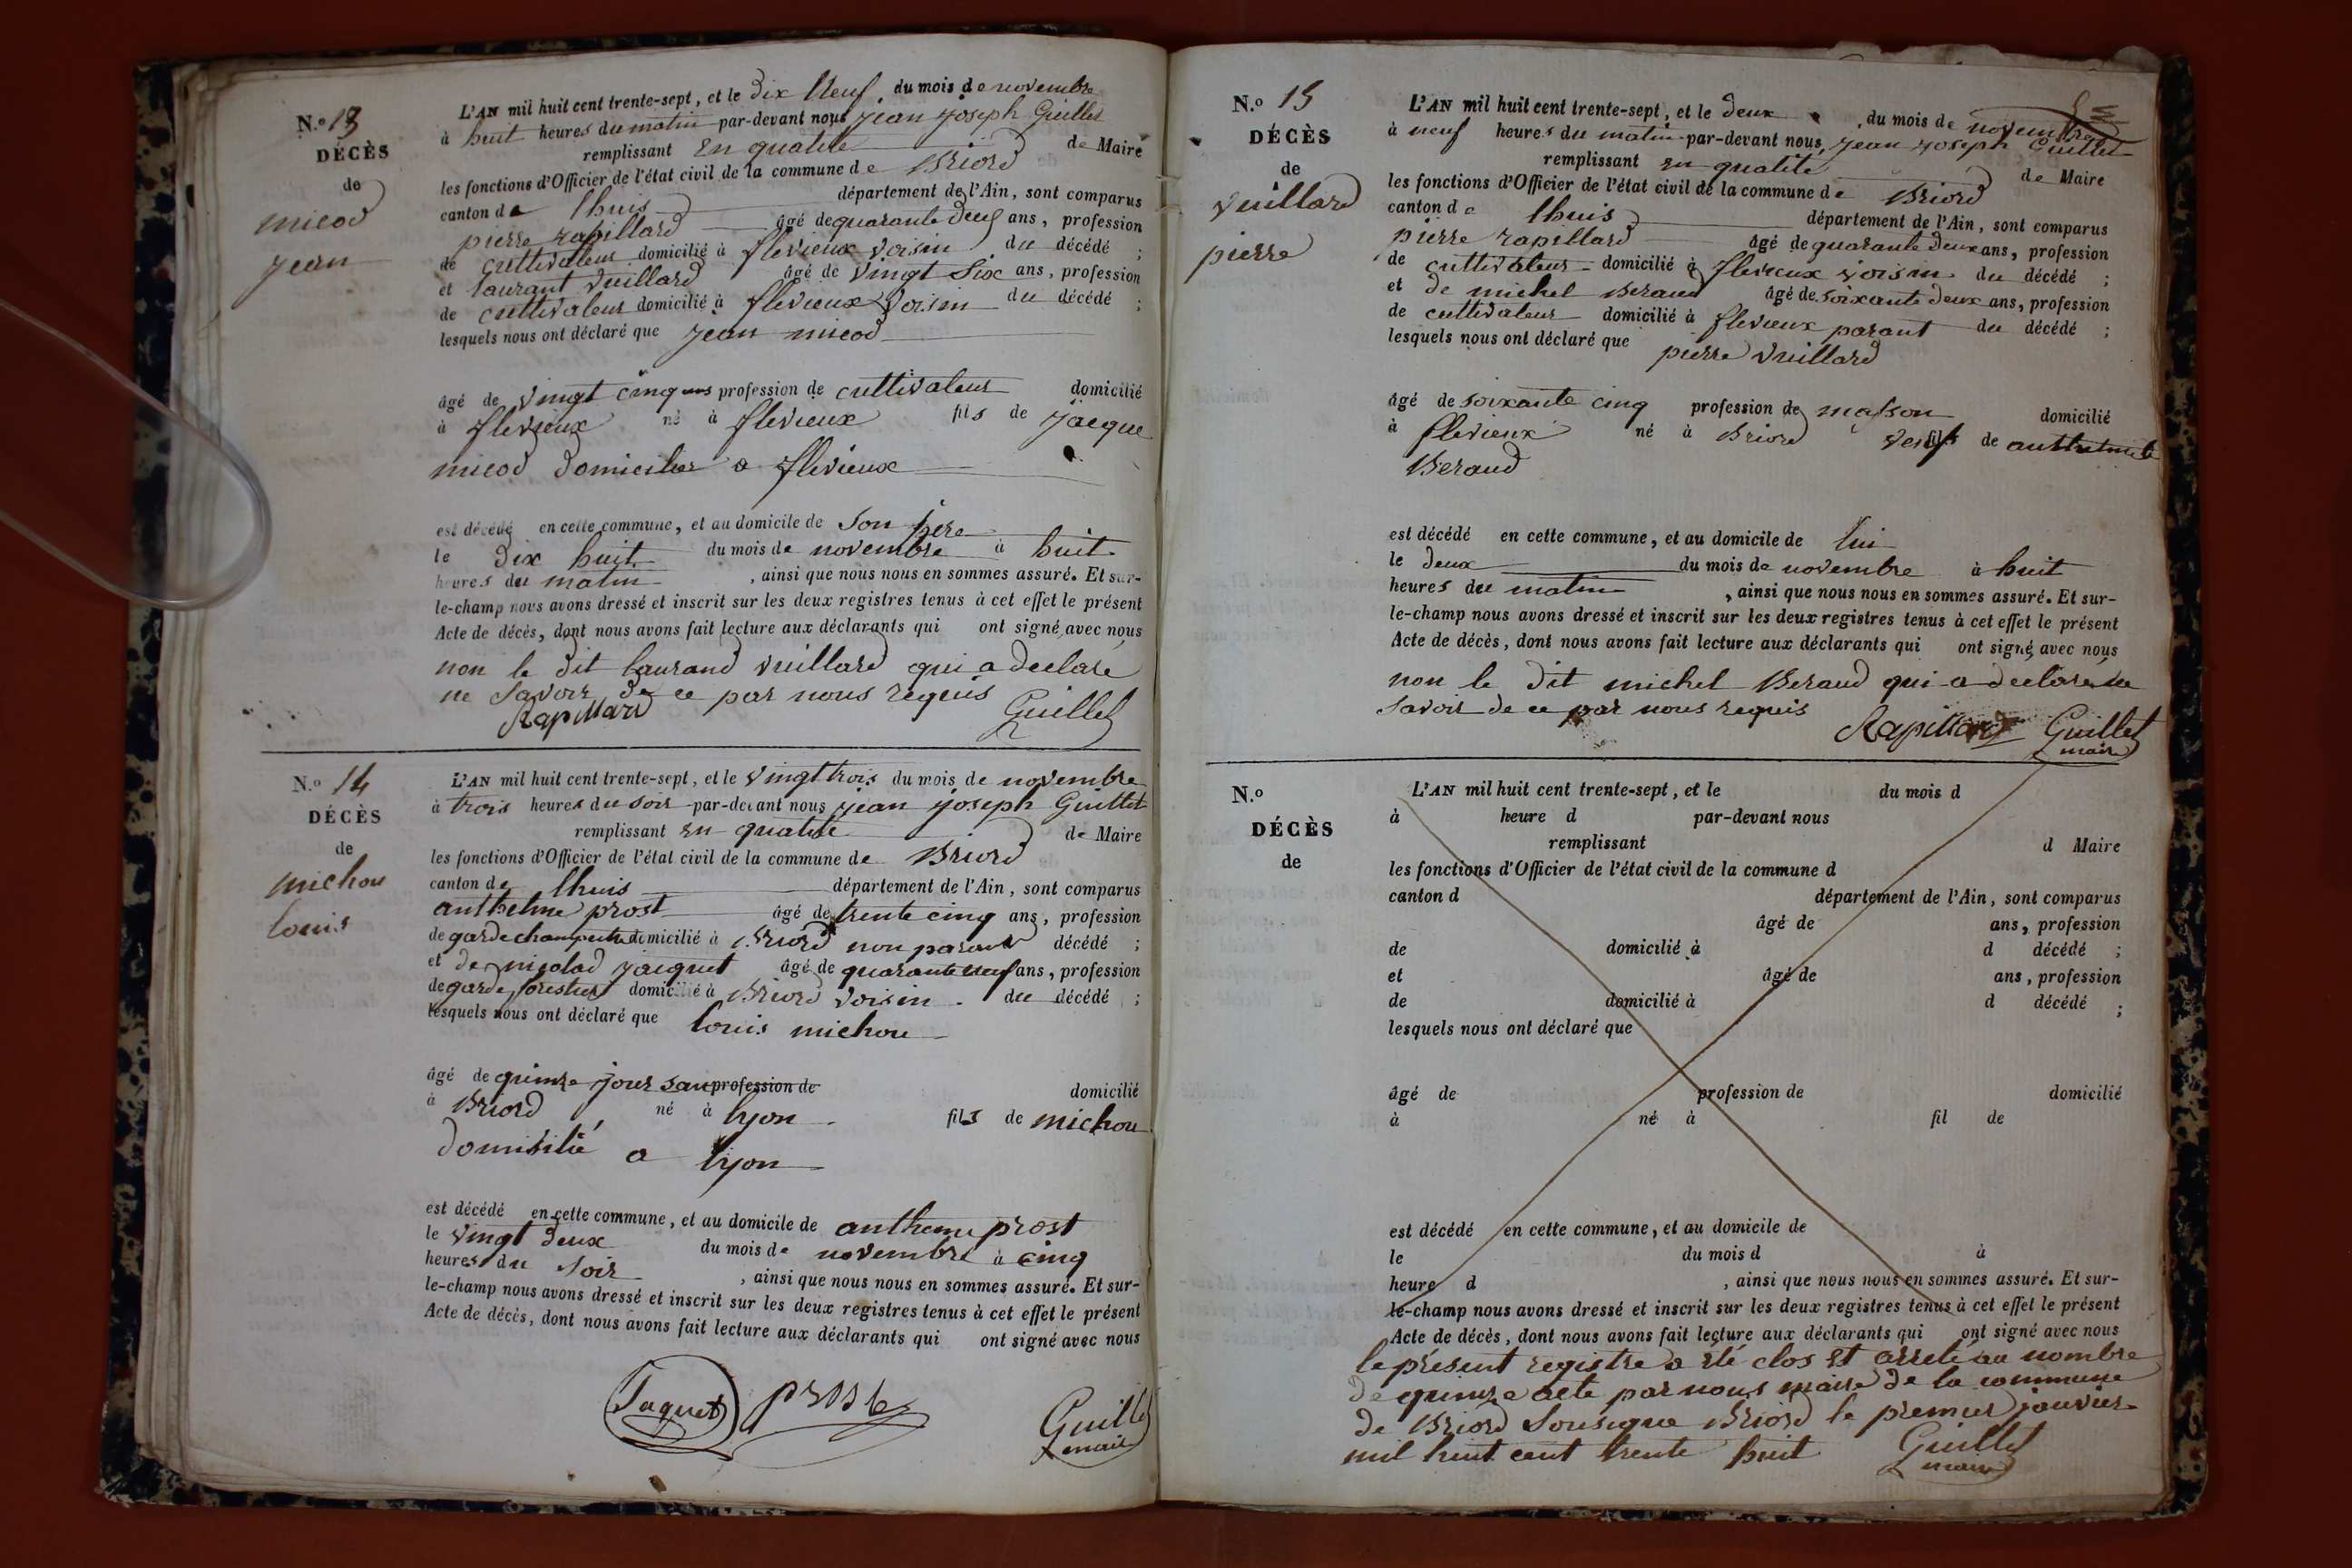 N.º 13
DÉCÈS
de
micod
jean
L'AN mil huit cent trente-sept, et le dix Neuf du mois de novembre
à huit heures du matin par-devant nous jean joseph Guillet
remplissant En qualité de Maire
les fonctions d'Officier de l'état civil de la commune de Briord
canton de lhuis département de l'Ain, sont comparus
pierre rapillard âgé de quarante deux ans, profession
de cultivateur domicilié à flevieux voisin du décédé ;
et laurant vuillard âgé de vingt six ans, profession
de cultivateur domicilié à flevieux voisin du décédé ;
lesquels nous ont déclaré que jean micod
âgé de vingt cinq ans profession de cultivateur domicilié
à flevieux né à flevieux fils de jacque
micod domicilier a flevieux
est décédé en cette commune, et au domicile de son pere
le dix huit du mois de novembre à huit
heures du matin , ainsi que nous nous en sommes assuré. Et sur-
le-champ nous avons dressé et inscrit sur les deux registres tenus à cet effet le présent
Acte de décès, dont nous avons fait lecture aux déclarants qui ont signé avec nous
non le dit laurand vuillard qui a declaré
ne savoir de ce par nous requis
Rapillard Guillet
N.º 14
DÉCÈS
de
michou
louis
L'AN mil huit cent trente-sept, et le vingt trois du mois de novembre
à trois heures du soir par-devant nous jean joseph Guillet
remplissant en qualité de Maire
les fonctions d'Officier de l'état civil de la commune de Briord
canton de lhuis département de l'Ain, sont comparus
anthelme prost âgé de trente cinq ans, profession
de garde champetre domicilié à Briord non parant décédé ;
et de nicolad jacquet âgé de quarante neuf ans, profession
de garde forestier domicilié à Briord voisin du décédé ;
lesquels nous ont déclaré que louis michou
âgé de quinze jour san profession de domicilié
à Briord né à lyon fils de michou
domisilié a lyon
est décédé en cette commune, et au domicile de antheme prost
le vingt deux du mois de novembre à cinq
heures du soir , ainsi que nous nous en sommes assuré. Et sur-
le-champ nous avons dressé et inscrit sur les deux registres tenus à cet effet le présent
Acte de décès, dont nous avons fait lecture aux déclarants qui ont signé avec nous
Jaquet prost Guillet
maire
N.º 15
DÉCÈS
de
vuillard
pierre
L'AN mil huit cent trente-sept, et le deux du mois de novembre
à neuf heures du matin par-devant nous, jean joseph Guillet
remplissant en qualité de Maire
les fonctions d'Officier de l'état civil de la commune de Briord
canton de lhuis département de l'Ain, sont comparus
pierre rapillard âgé de quarante deux ans, profession
de cultivateur domicilié à flevieux voisin du décédé ;
et de michel Beraud âgé de soixante deux ans, profession
de cultivateur domicilié à flevieux parant du décédé ;
lesquels nous ont déclaré que
pierre vuillard
âgé de soixante cinq profession de masson domicilié
à flevieux né à Briord vesf de
Beraud
est décédé en cette commune, et au domicile de lui
le deux du mois de novembre à huit
heures du matin , ainsi que nous nous en sommes assuré. Et sur-
le-champ nous avons dressé et inscrit sur les deux registres tenus à cet effet le présent
Acte de décès, dont nous avons fait lecture aux déclarants qui ont signé avec nous
non le dit michel Beraud qui a declaré ne
savoir de ce par nous requis
Rapillard Guillet
maire
N.º
DÉCÈS
de
L'AN mil huit cent trente-sept, et le du mois d
à heure d par-devant nous
remplissant d Maire
les fonctions d'Officier de l'état civil de la commune d
canton d département de l'Ain, sont comparus
âgé de ans, profession
de domicilié à d décédé ;
et âgé de ans, profession
de domicilié à d décédé ;
lesquels nous ont déclaré que
âgé de profession de domicilié
à né à fil de
est décédé en cette commune, et au domicile de
le du mois d à
heure d , ainsi que nous nous en sommes assuré. Et sur-
le-champ nous avons dressé et inscrit sur les deux registres tenus à cet effet le présent
Acte de décès, dont nous avons fait lecture aux déclarants qui ont signé avec nous
le présent registre a été clos et arreté au nombre
de quinze acte par nous maire de la commune
de Briord Sousigne Briord le premier janvier
mil huit cent trente huit Guillet
maire